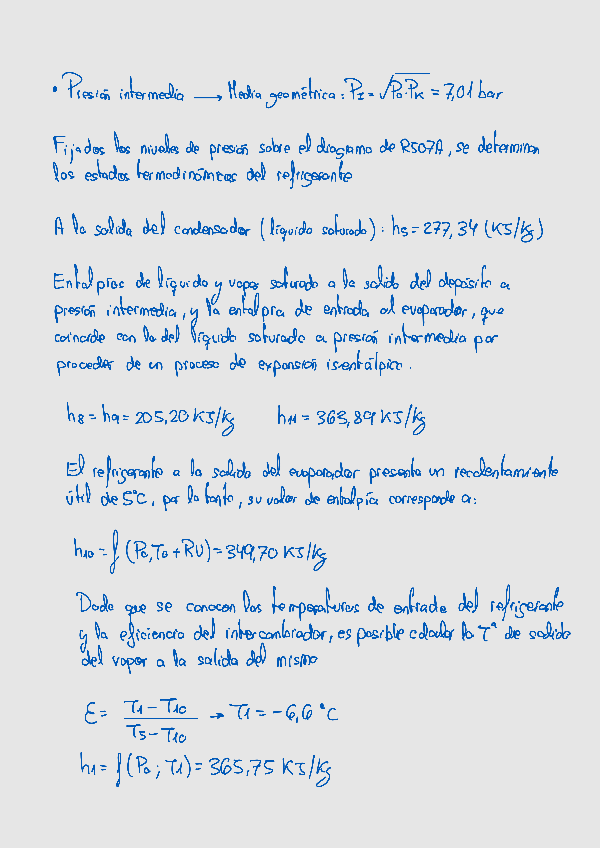 • Presión intermedia → Media geométrica: P_I = √P_0·P_K = 7,01 bar
Fijados los niveles de presión sobre el diagrama de R507A, se determinan
los estados termodinámicos del refrigerante
A la salida del condensador (líquido saturado): h_5 = 277,34 (KJ/Kg)
Entalpías de líquido y vapor saturado a la salida del depósito a
presión intermedia, y la entalpía de entrada al evaporador, que
coincide con la del líquido saturado a presión intermedia por
proceder de un proceso de expansión isentálpico.
h_8 = h_9 = 205,20 KJ/Kg h_11 = 363,89 KJ/Kg
El refrigerante a la salida del evaporador presenta un recalentamiento
útil de 5°C, por lo tanto, su valor de entalpía corresponde a:
h_10 = f (P_0, T_0 + RU) = 349,70 KJ/Kg
Dado que se conocen las temperaturas de entrada del refrigerante
y la eficiencia del intercambiador, es posible calcular la Tª de salida
del vapor a la salida del mismo
ε = (T_1 − T_10) / (T_5 − T_10) → T_1 = −6,6 °C
h_1 = f (P_0 ; T_1) = 365,75 KJ/Kg